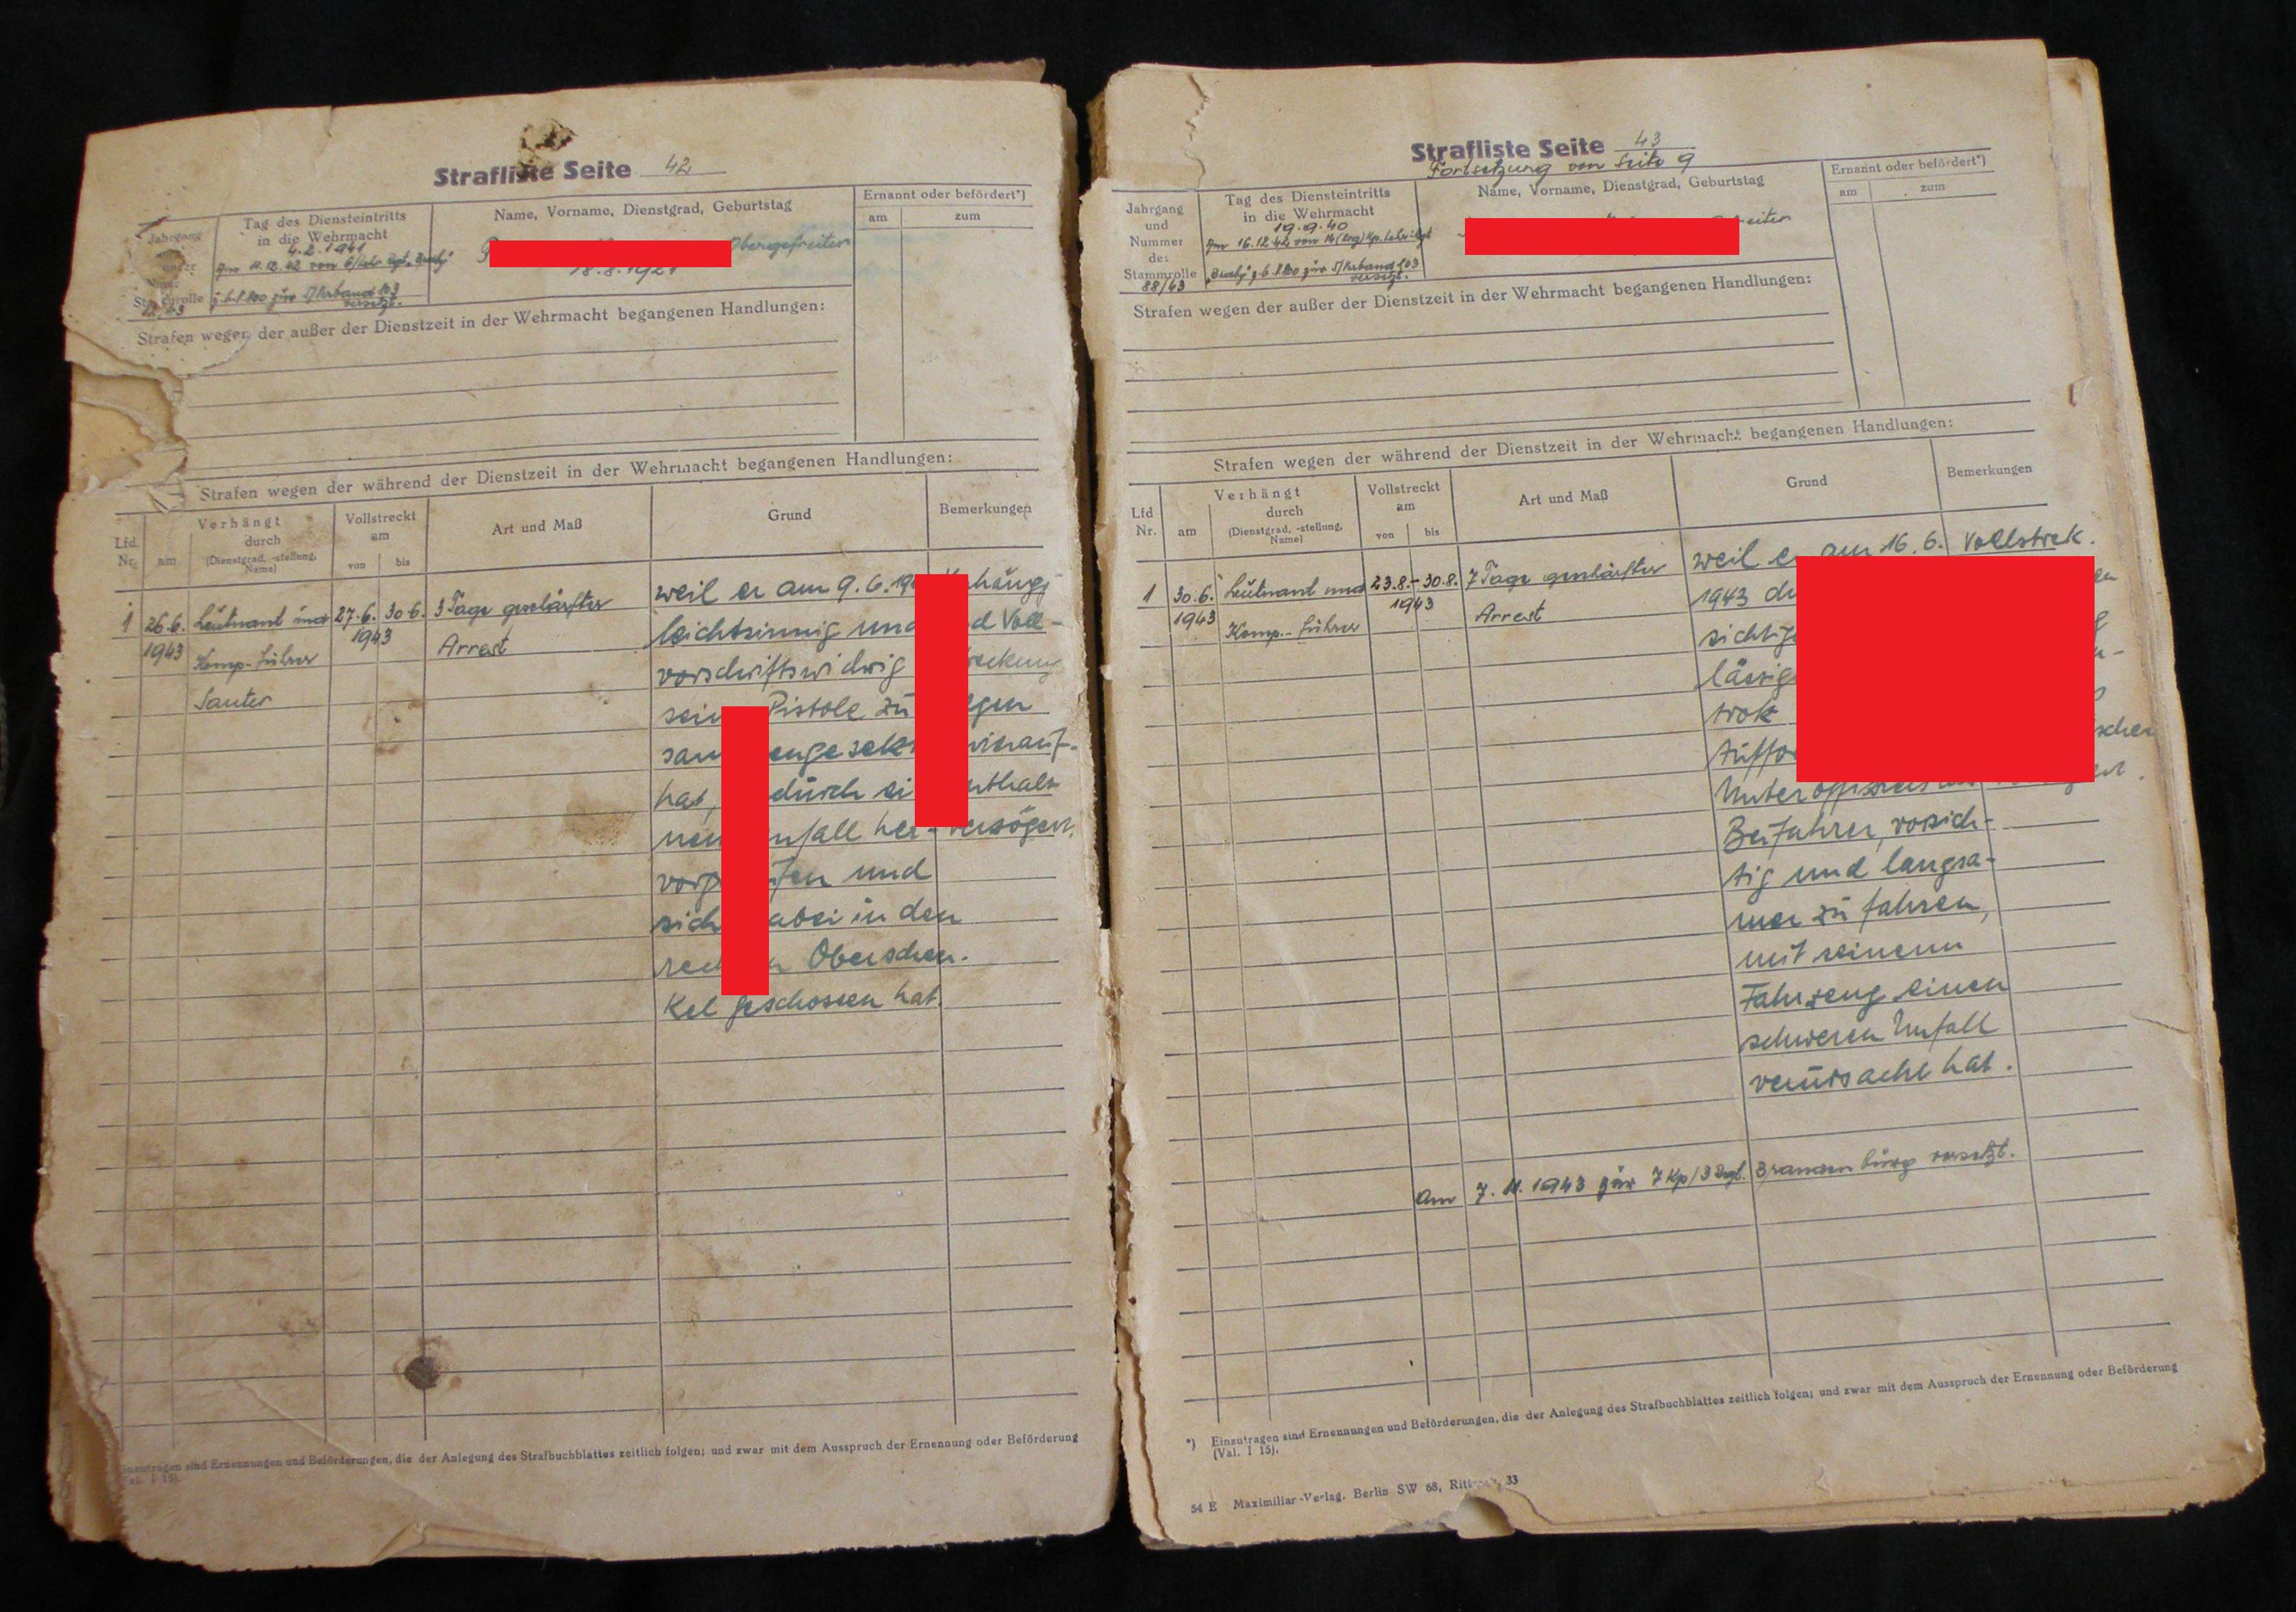 Strafliste Seite 42
Jahrgang
Tag des Diensteintritts
in die Wehrmacht
4.2.1941
Am 11.12.42 von
z.b.V. 800 zum V/Verband 803
versetzt.
Name, Vorname, Dienstgrad, Geburtstag
Obergefreiter
18.8.1921
Ernannt oder befördert*)
am zum
Strafen wegen der außer der Dienstzeit in der Wehrmacht begangenen Handlungen:
Strafen wegen der während der Dienstzeit in der Wehrmacht begangenen Handlungen:
Lfd. Nr.
Verhängt
am
durch
(Dienstgrad, -stellung, Name)
Vollstreckt
am
von bis
Art und Maß
Grund
Bemerkungen
1 26.6. Leutnant und 27.6. 30.6. 3 Tage geschärfter
1943 Komp.-Führer 1943 Arrest
Sauter
weil er am 9.6.19
leichtsinnig und
vorschriftswidrig
sein Pistole zu
sam engeset
hat, durch ei
nen nfall her-
vorg fen und
sich abei in den
rec n Oberschen-
kel geschossen hat.
hängg
d Voll-
reckung
gen
nthalt
verzögert.
inzutragen sind Ernennungen und Beförderungen, die der Anlegung des Strafbuchblattes zeitlich folgen; und zwar mit dem Ausspruch der Ernennung oder Beförderung
al. I 15).
Strafliste Seite 43
Fortsetzung von Seite 9
Jahrgang
und
Nummer
der
Stammrolle
88/43
Tag des Diensteintritts
in die Wehrmacht
19.9.40
Am 16.12.42 von 14 (Erg) Kp. Lehr-Rgt
z.b.V. 800 zum V/Verband 803
versetzt.
Name, Vorname, Dienstgrad, Geburtstag
eiter
Ernannt oder befördert*)
am zum
Strafen wegen der außer der Dienstzeit in der Wehrmacht begangenen Handlungen:
Strafen wegen der während der Dienstzeit in der Wehrmacht begangenen Handlungen:
Lfd Nr.
Verhängt
am
durch
(Dienstgrad, -stellung, Name)
Vollstreckt
am
von bis
Art und Maß
Grund
Bemerkungen
1 30.6. Leutnant und 23.8.-30.8. 7 Tage geschärfter
1943 Komp.-Führer 1943 Arrest
weil er am 16.6.
1943 du
sichtig
lässig
trok
Auffor
Unteroffiziers als
Beifahrer, vorsich-
tig und langsa-
mer zu fahren,
mit seinem
Fahrzeug einen
schweren Unfall
verursacht hat.
Vollstrek.
en
schen
Am 7.11.1943 zur 7 Kp/3 Rgt. Brandenburg versetzt.
*) Einzutragen sind Ernennungen und Beförderungen, die der Anlegung des Strafbuchblattes zeitlich folgen; und zwar mit dem Ausspruch der Ernennung oder Beförderung
(Val. I 15).
54 E Maximilian-Verlag, Berlin SW 68, Ritt 33